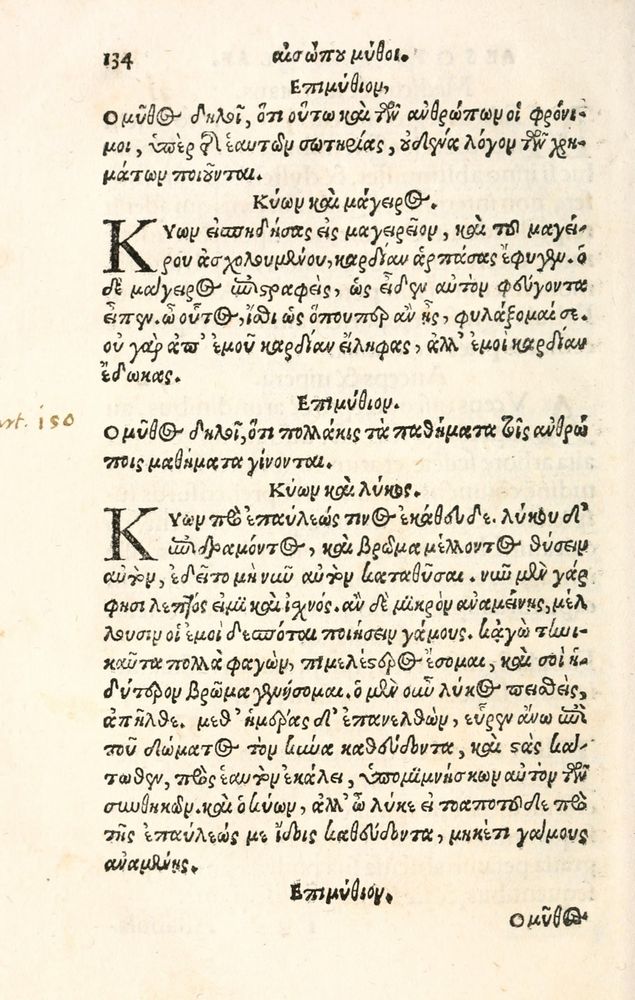 134 αἰσώπου μῦθοι.
Επιμύθιον,
Ο μῦθος δηλοῖ, ὅτι οὕτω καὶ τῶν ἀνθρώπων οἱ φρόνι-
μοι, ὑπὲρ τῆς ἑαυτῶν σωτηρίας, οὐδένα λόγον τῶν χρη-
μάτων ποιοῦνται.
Κύων καὶ μάγειρος.
Κύων εἰσπηδήσας εἰς μαγειρεῖον, καὶ τοῦ μαγεί-
ρου ἀσχολουμένου, καρδίαν ἁρπάσας ἔφυγεν. ὁ
δὲ μάγειρος ἐπιστραφεὶς, ὡς εἶδεν αὐτὸν φεύγοντα
εἶπεν. ὦ οὗτος, ἴσθι ὡς ὅπουπερ ἂν ᾖς, φυλάξομαί σε.
οὐ γὰρ ἀπ' ἐμοῦ καρδίαν εἴληφας, ἀλλ' ἐμοὶ καρδίαν
ἔδωκας.
Επιμύθιον.
art. 150
Ο μῦθος δηλοῖ, ὅτι πολλάκις τὰ παθήματα τοῖς ἀνθρώ
ποις μαθήματα γίνονται.
Κύων καὶ λύκος.
Κύων πρὸ ἐπαύλεώς τινος ἐκάθευδε. λύκου δ'
ἐπιδραμόντος, καὶ βρῶμα μέλλοντος θύσειν
αὐτὸν, ἐδεῖτο μὴ νῦν αὐτὸν καταθῦσαι. νῦν μὲν γάρ
φησι λεπτός εἰμι καὶ ἰσχνός. ἂν δὲ μικρὸν ἀναμείνῃς, μέλ
λουσιν οἱ ἐμοὶ δεσπόται ποιήσειν γάμους. κἀγὼ τηνι-
καῦτα πολλὰ φαγὼν, πιμελέστερος ἔσομαι, καὶ σοὶ ἡ-
δύτερον βρῶμα γενήσομαι. ὁ μὲν οὖν λύκος πεισθεὶς,
ἀπῆλθε. μεθ' ἡμέρας δ' ἐπανελθὼν, εὗρεν ἄνω ἐπί
που δώματος τὸν κύνα καθεύδοντα, καὶ στὰς κά-
τωθεν, πρὸς ἑαυτὸν ἐκάλει, ὑπομιμνήσκων αὐτὸν τῶν
συνθηκῶν. καὶ ὁ κύων, ἀλλ' ὦ λύκε εἰ τοαποτοῦδε πρὸ
τῆς ἐπαύλεώς με ἴδοις καθεύδοντα, μηκέτι γάμους
ἀναμένῃς.
Επιμύθιον.
Ο μῦθος